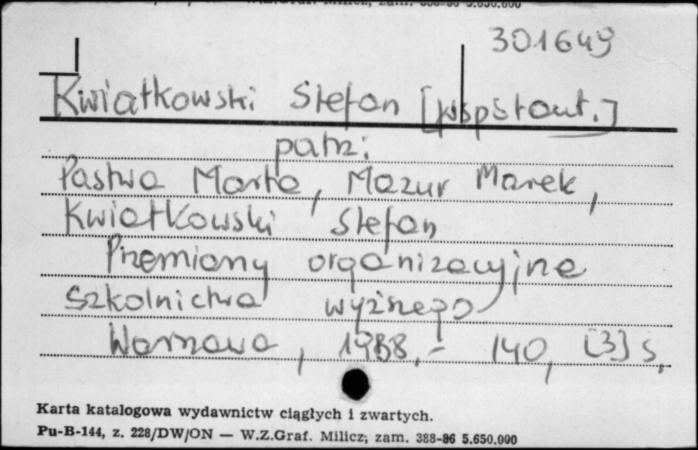 301649
Kwiatkowski Stefan [współaut.]
patrz:
Pastwa Marta, Mazur Marek,
Kwiatkowski Stefan
Przemiany organizacyjne
szkolnictwa wyższego
Warszawa, 1988.- 140, [3] s.
Karta katalogowa wydawnictw ciągłych i zwartych.
Pu-B-144, z. 228/DW/ON — W.Z.Graf. Milicz, zam. 388-86 5.650.000